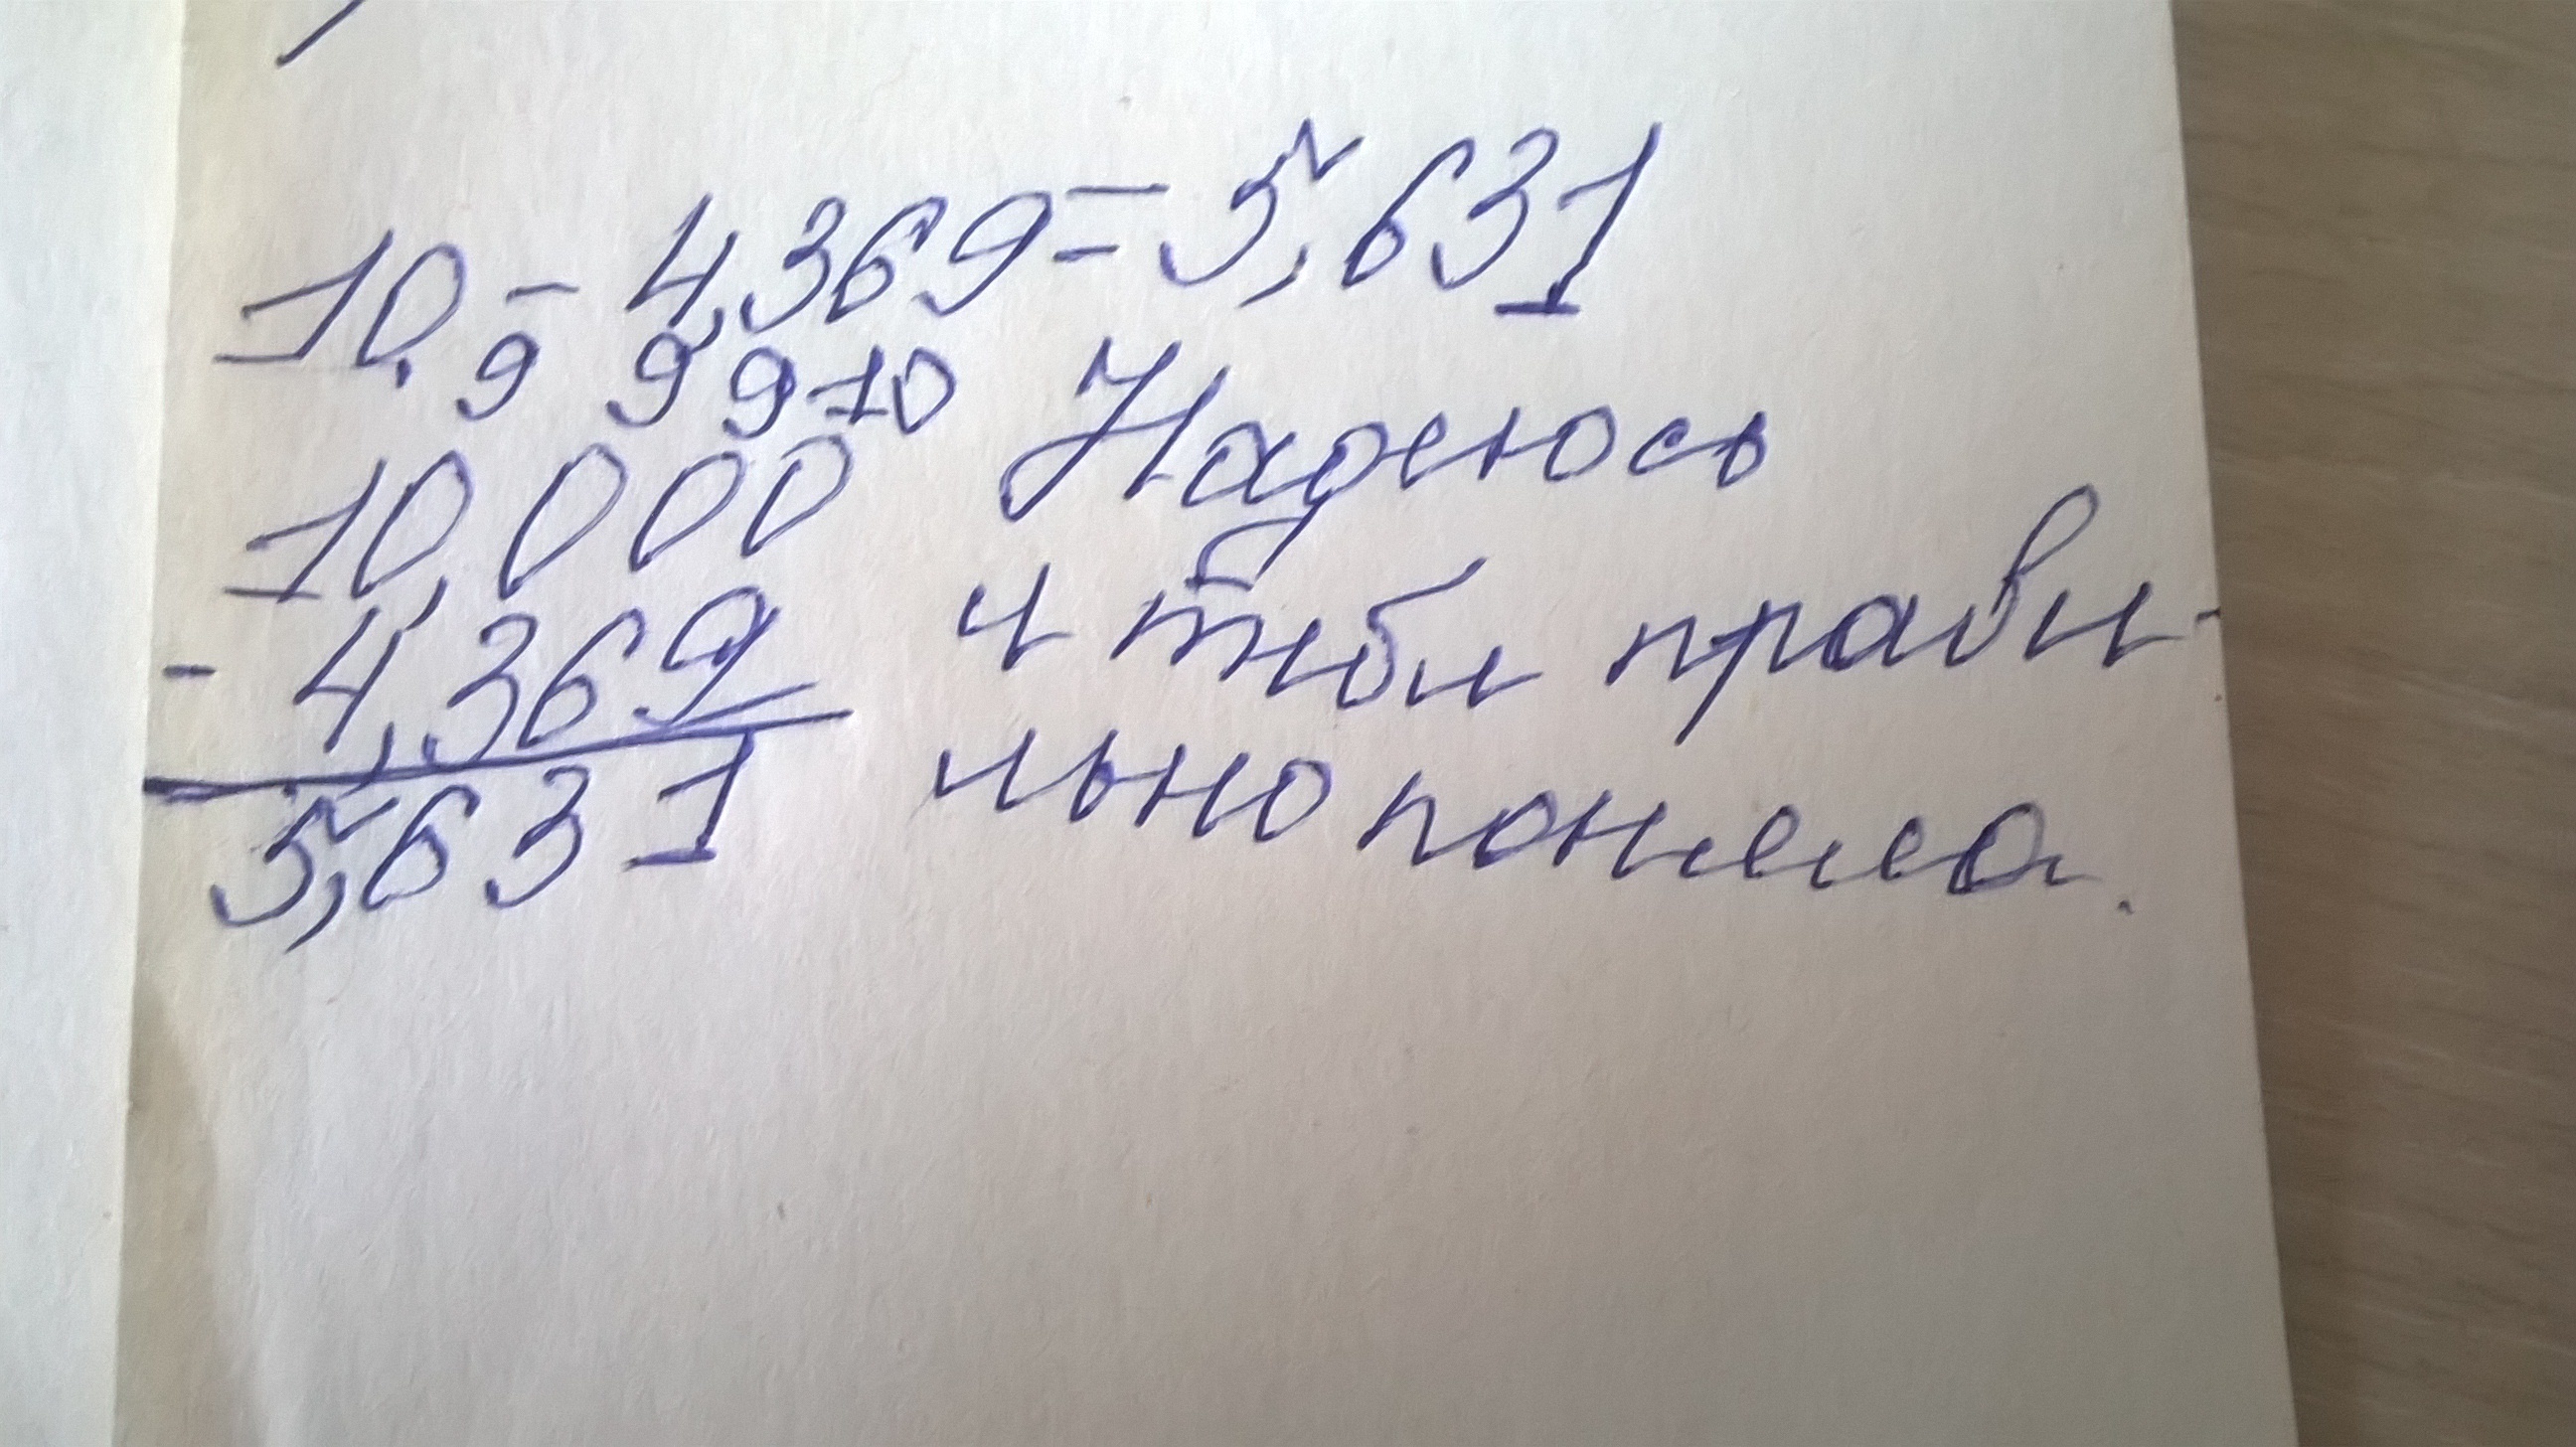 10, - 4,369 = 5,631
9 9 9 10
10,000
- 4,369
5,631
Надеюсь
я тибя прави-
льно поняла.